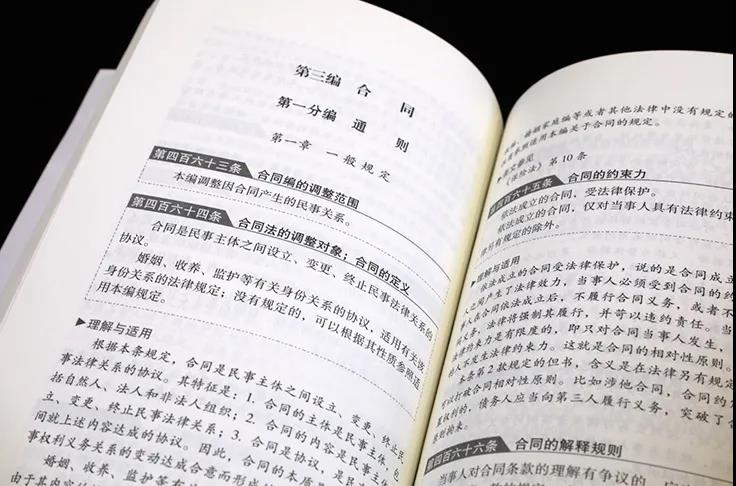 第三编 合 同
第一分编 通 则
第一章 一般规定
第四百六十三条 合同编的调整范围
本编调整因合同产生的民事关系。
第四百六十四条 合同法的调整对象；合同的定义
合同是民事主体之间设立、变更、终止民事法律关系的
协议。
婚姻、收养、监护等有关身份关系的协议，适用有关该
身份关系的法律规定；没有规定的，可以根据其性质参照适
用本编规定。
▶理解与适用
根据本条规定，合同是民事主体之间设立、变更、终止民
事法律关系的协议。其特征是：1. 合同的主体是民事主体，包
括自然人、法人和非法人组织；2. 合同的内容是民事主体
立、变更、终止民事法律关系；3. 合同是协议，是民事主体
间就上述内容达成的协议。因此，合同的本质
事权利义务关系的变动达成合意而形成的
婚姻、收养、监护等有
由于其内容
婚姻家庭编等或者其他法律中没有规定的
参照适用本编关于合同的规定。
《保险法》第10条
第四百六十五条 合同的约束力
依法成立的合同，受法律保护。
依法成立的合同，仅对当事人具有法律约束
律另有规定的除外。
▶理解与适用
依法成立的合同受法律保护，说的是合同成立
人之间产生了法律效力，当事人必须受到合同的约
事人在合同依法成立后，不履行合同义务，或者不
同义务，法律将强制其履行，并苛以违约责任。当
法律约束力是有限度的，即只对合同当事人发生，
的人不发生法律约束力。这就是合同的相对性原则。
本条第2款规定的但书，含义是在法律另有规定
可以打破合同相对性原则。比如涉他合同，合同约定
权利的，债务人应当向第三人履行义务，突破了合
原则拘束。
第四百六十六条 合同的解释规则
当事人对合同条款的理解有争议的，
款的